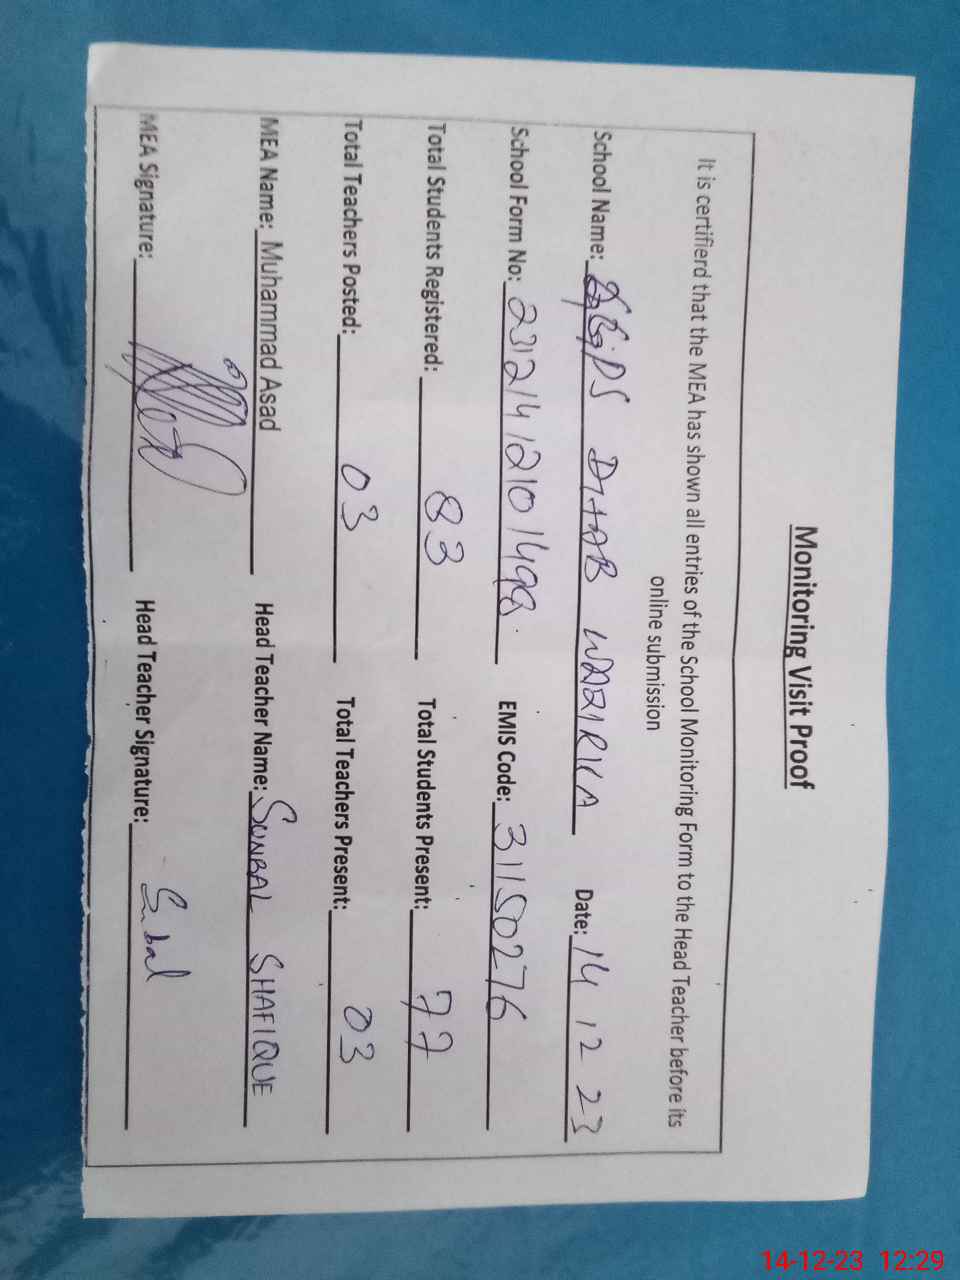 Monitoring Visit Proof
It is certifierd that the MEA has shown all entries of the School Monitoring Form to the Head Teacher before its
online submission
School Name: GGPS DHAB WAZIRKA Date: 14 12 23
School Form No: 23121412101498 EMIS Code: 31150276
Total Students Registered: 83 Total Students Present: 77
Total Teachers Posted: 03 Total Teachers Present: 03
MEA Name: Muhammad Asad Head Teacher Name: SUNBAL SHAFIQUE
MEA Signature: Head Teacher Signature: Sunbal
14-12-23 12:29